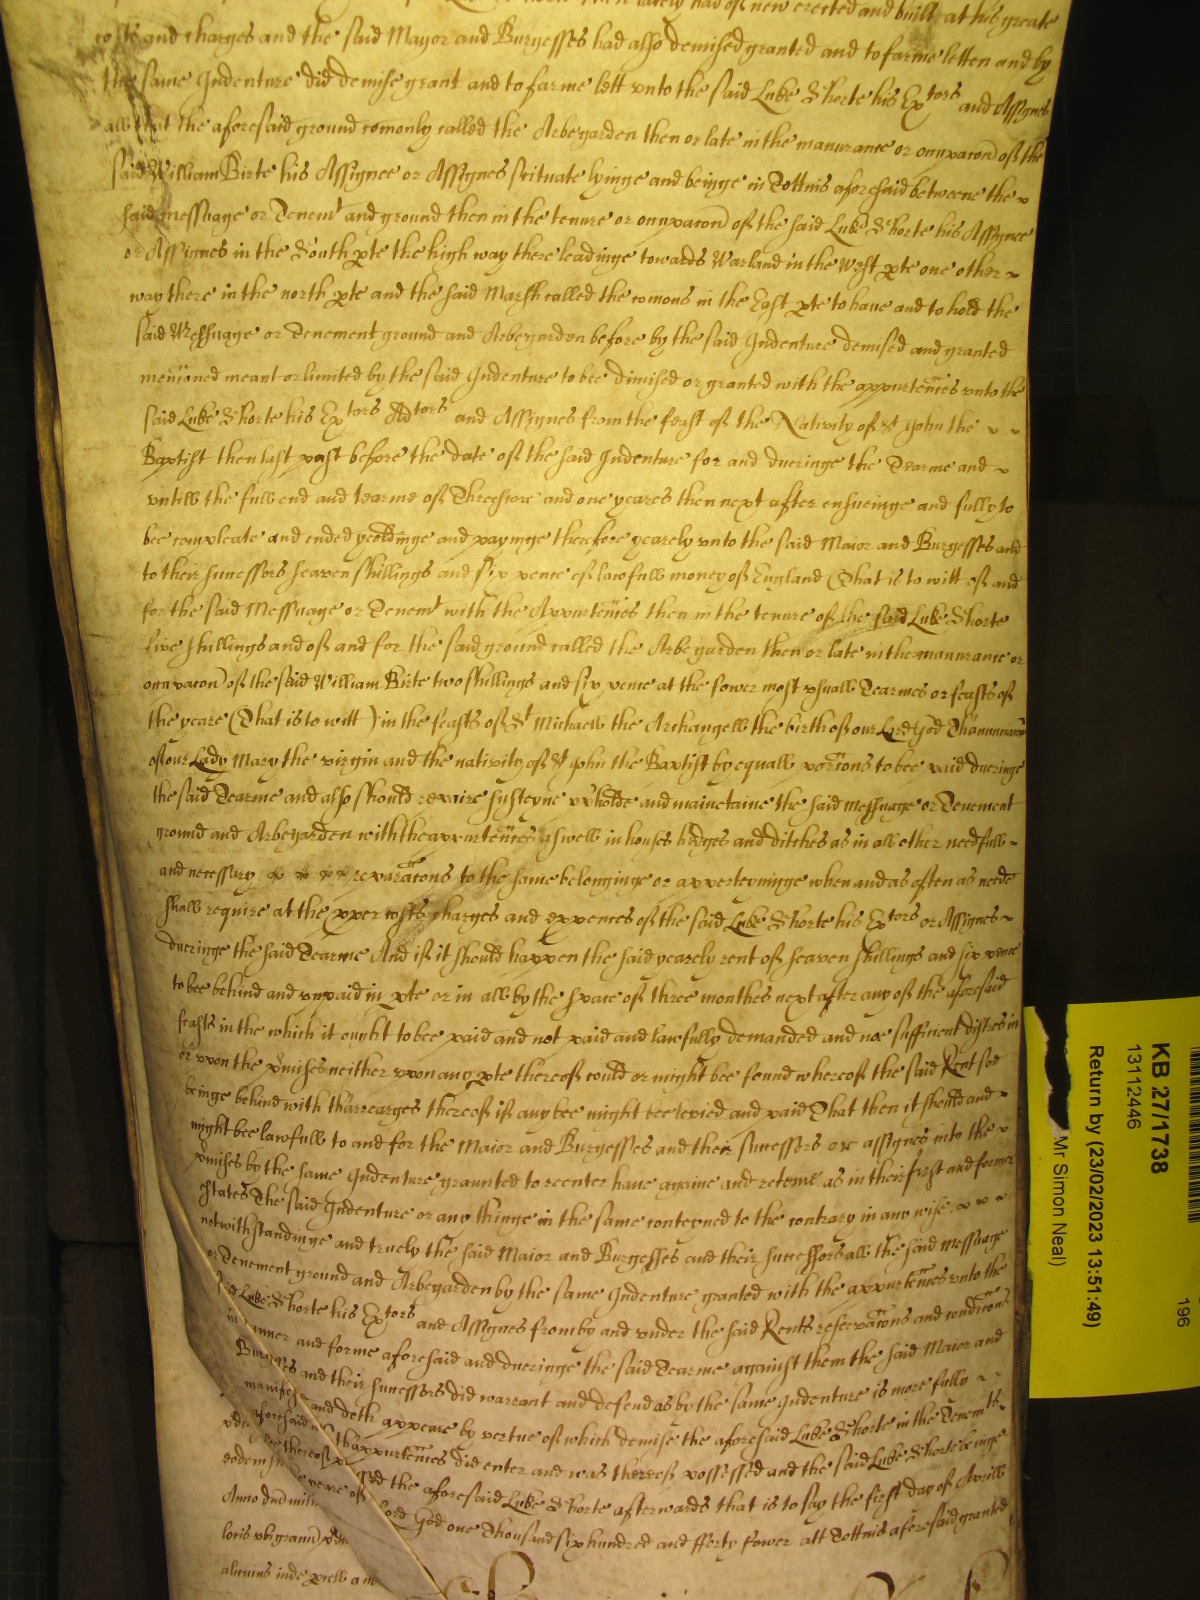 then lately had of new erected and built at his greate
costs and charges and the said Mayor and Burgesses had also demised granted and to farme letten and by
the same Indenture did demise grant and to farme lett vnto the said Luke Shorte his Extors and Assignes
all that the aforesaid ground comonly called the Arbegarden then or late in the manurance or occupacon of the
said William Birte his Assignee or Assignes scituate lyinge and beinge in Tottnis aforesaid betweene the
said messuage or Tenemt and ground then in the tenure or occupacon of the said Luke Shorte his Assignee
or Assignes in the South pte the high way there leadinge towards Warland in the West pte one other
way there in the north pte and the said Marsh called the comons in the East pte to haue and to hold the
said Messuage or Tenement ground and Arbegarden before by the said Indenture demised and granted
mencioned meant or limited by the said Indenture to bee dimised or granted with the appurtences vnto the
said Luke Shorte his Extors Adtors and Assignes from the feast of the Nativity of St John the
Baptist then last past before the date of the said Indenture for and dueringe the Tearme and
vntill the full end and tearme of Threescore and one yeares then next after ensueinge and fully to
bee compleate and ended yeoldinge and payinge therefore yearely vnto the said Maior and Burgesses and
to their successors seaven shillings and six pence of lawfull money of England (That is to witt of and
for the said Messuage or Tenemt with the Appurtences then in the tenure of the said Luke Shorte
five shillings and of and for the said ground called the Arbegarden then or late in the manurance or
occupacon of the said William Birte two shillings and six pence at the fower most vsuall Tearmes or feasts of
the yeare (That is to witt) in the feasts of St Michaell the Archangell the birth of our Lord God Thanunciacon
of our Lady Mary the virgin and the nativity of St John the Baptist by equall porcions to bee paid dueringe
the said Tearme and also should repaire susteyne vpholde and maintaine the said messuage or Tenement
ground and Arbegarden with the appurtences aswell in houses hedges and ditches as in all other needfull
and necessary reparacons to the same belonginge or apperteyninge when and as often as neede
shall require at the pper costs charges and expences of the said Luke Shorte his Extors or Assignes
dueringe the said Tearme And if it should happen the said yearely rent of seaven shillings and six pence
to bee behind and vnpaid in pte or in all by the space of three monthes next after any of the aforesaid
feasts in the which it ought to bee paid and not paid and lawfully demanded and noe sufficient distres in
or vpon the pmises neither vpon any pte thereof could or might bee found whereof the said Rent soe
beinge behind with tharrearges thereof if any bee might bee levied and paid That then it should and
might bee lawfull to and for the Maior and Burgesses and their successors or assignes into the
pmises by the same Indenture graunted to reenter haue againe and reteine as in their first and former
states The said Indenture or any thinge in the same conteyned to the contrary in any wise
notwithstandinge and truely the said Maior and Burgesses and their successors all the said messuage
or Tenement ground and Arbegarden by the same Indenture granted with the appurtences vnto the
said Luke Shorte his Extors and Assignes from by and vnder the said Rents reservacons and condicons
in manner and forme aforesaid and dueringe the said Tearme against them the said Maior and
Burgses and their successors did warrant and defend as by the same Indenture is more fully
manifest and doth appeare by vertue of which demise the aforesaid Luke Shorte in the Tenemts
aforesaid wth thappurtences did enter and was thereof possessed and the said Luke Shorte beinge
see thereof possessed the aforesaid Luke Shorte afterwards that is to say the first day of Aprill
yeare of Lord God one Thousand six hundred and fforty fower att Tottnis aforesaid granted
eodem
Anno dnd mill
locis vbi
alicuius inde
KB 27/1738
13112446
Return by (23/02/2023 13:51:49)
Mr Simon Neal)
196